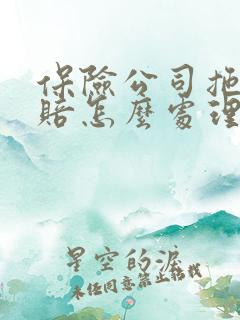 保險公司拒
賠怎麼處理
星空的淚
未经同意禁止转载